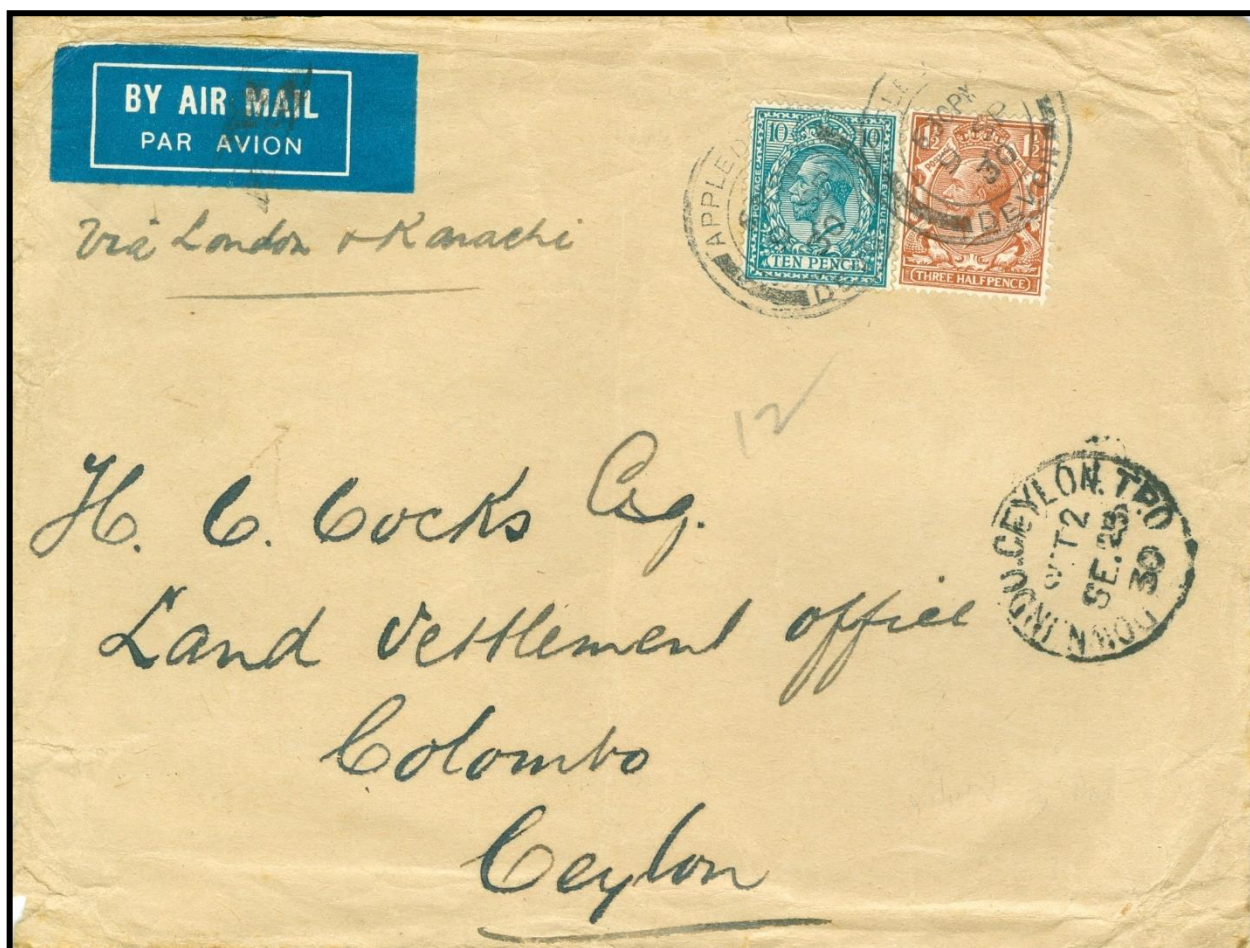 BY AIR MAIL
PAR AVION
Via London & Karachi
POSTAGE
10 10
TEN PENCE
1½ 1½
THREE HALFPENCE
DEVON
30
12
H. C. Cocks Esq.
Land Settlement office
Colombo
Ceylon
INDU.CEYLON.T.P.O
SE.23
30
DOWN